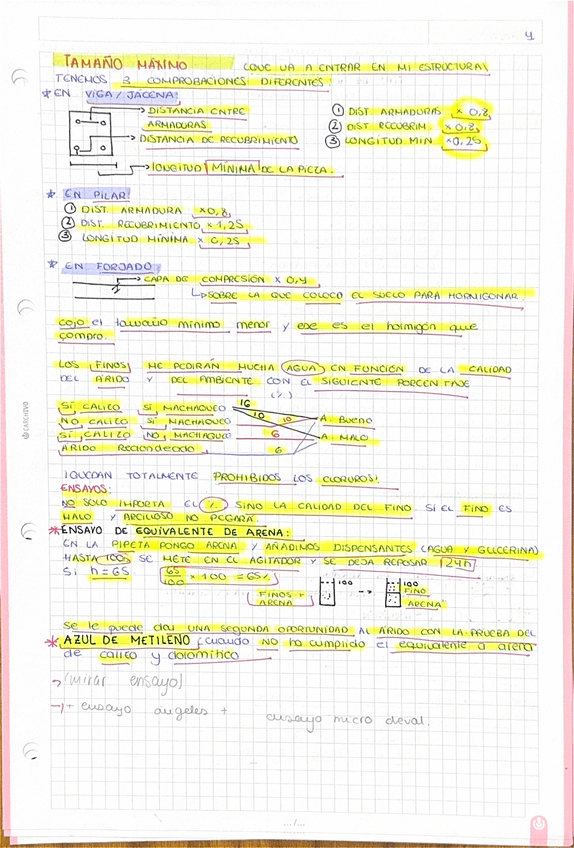 4
TAMAÑO MÁXIMO (QUE VA A ENTRAR EN MI ESTRUCTURA)
TENEMOS 3 COMPROBACIONES DIFERENTES:
* EN VIGA/JÁCENA:
→ DISTANCIA ENTRE
ARMADURAS
→ DISTANCIA DE RECUBRIMIENTO
→ LONGITUD MÍNIMA DE LA PIEZA.
① DIST. ARMADURAS × 0,8
② DIST RECUBRIM. × 0,8
③ LONGITUD MIN × 0,25
* EN PILAR:
① DIST. ARMADURA × 0,8
② DIST. RECUBRIMIENTO × 1,25
③ LONGITUD MÍNINA × 0,25
* EN FORJADO
→ CAPA DE COMPRESIÓN × 0,4
↳ SOBRE LA QUE COLOCO EL SUELO PARA HORMIGONAR
cojo el tamaño mínimo menor y ese es el hormigón que
compro.
LOS FINOS ME PEDIRÁN MUCHA AGUA EN FUNCIÓN DE LA CALIDAD
DEL ÁRIDO Y DEL AMBIENTE CON EL SIGUIENTE PORCENTAJE
(%)
SÍ CALIZO SÍ MACHAQUEO 16
NO CALIZO SÍ MACHAQUEO 10 10 A. BUENO
SÍ CALIZO NO MACHAQUEO 6 A. MALO
ÁRIDO Redondeado 6
¡QUEDAN TOTALMENTE PROHIBIDOS LOS CLORUROS!
ENSAYOS:
NO SOLO IMPORTA EL % SINO LA CALIDAD DEL FINO SI EL FINO ES
MALO Y ARCILLOSO NO PEGARÁ.
* ENSAYO DE EQUIVALENTE DE ARENA:
EN LA PIPETA PONGO ARENA Y AÑADIMOS DISPENSANTES (AGUA Y GLICERINA)
HASTA 100 SE METE EN EL AGITADOR Y SE DEJA REPOSAR 24h
Si h = 65 65/100 × 100 = 65%
FINOS + ARENA
100 → 100
FINO
ARENA
Se le puede dar UNA SEGUNDA OPORTUNIDAD AL ÁRIDO CON LA PRUEBA DEL
* AZUL DE METILENO cuando NO ha cumplido el equivalente a arena
de calizo y dolomítico
→ (mirar ensayo)
→ + ensayo angeles + ensayo micro deval.
CARCHIVO